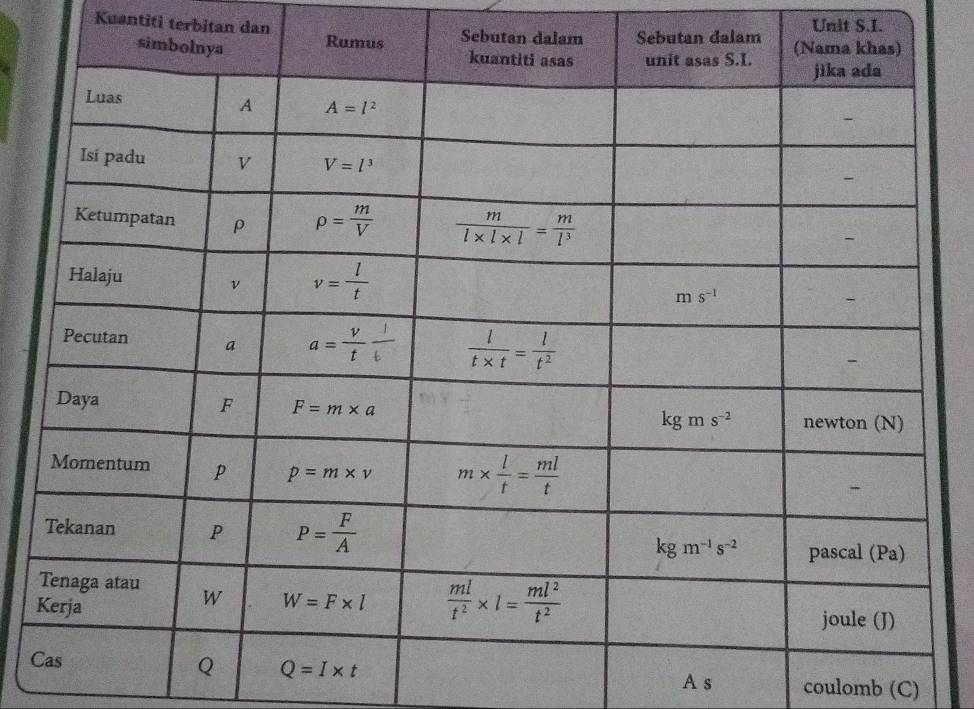 Kuantiti terbitan dan simbolnya | Rumus | Sebutan dalam kuantiti asas | Sebutan dalam unit asas S.I. | Unit S.I. (Nama khas) jika ada
Luas | A | A = l² | | | –
Isi padu | V | V = l³ | | | –
Ketumpatan | ρ | ρ = m/V | m/(l × l × l) = m/l³ | | –
Halaju | v | v = l/t | | m s⁻¹ | –
Pecutan | a | a = v/t | l/(t × t) = l/t² | | –
Daya | F | F = m × a | | kg m s⁻² | newton (N)
Momentum | p | p = m × v | m × l/t = ml/t | | –
Tekanan | P | P = F/A | | kg m⁻¹ s⁻² | pascal (Pa)
Tenaga atau Kerja | W | W = F × l | ml/t² × l = ml²/t² | | joule (J)
Cas | Q | Q = I × t | | A s | coulomb (C)